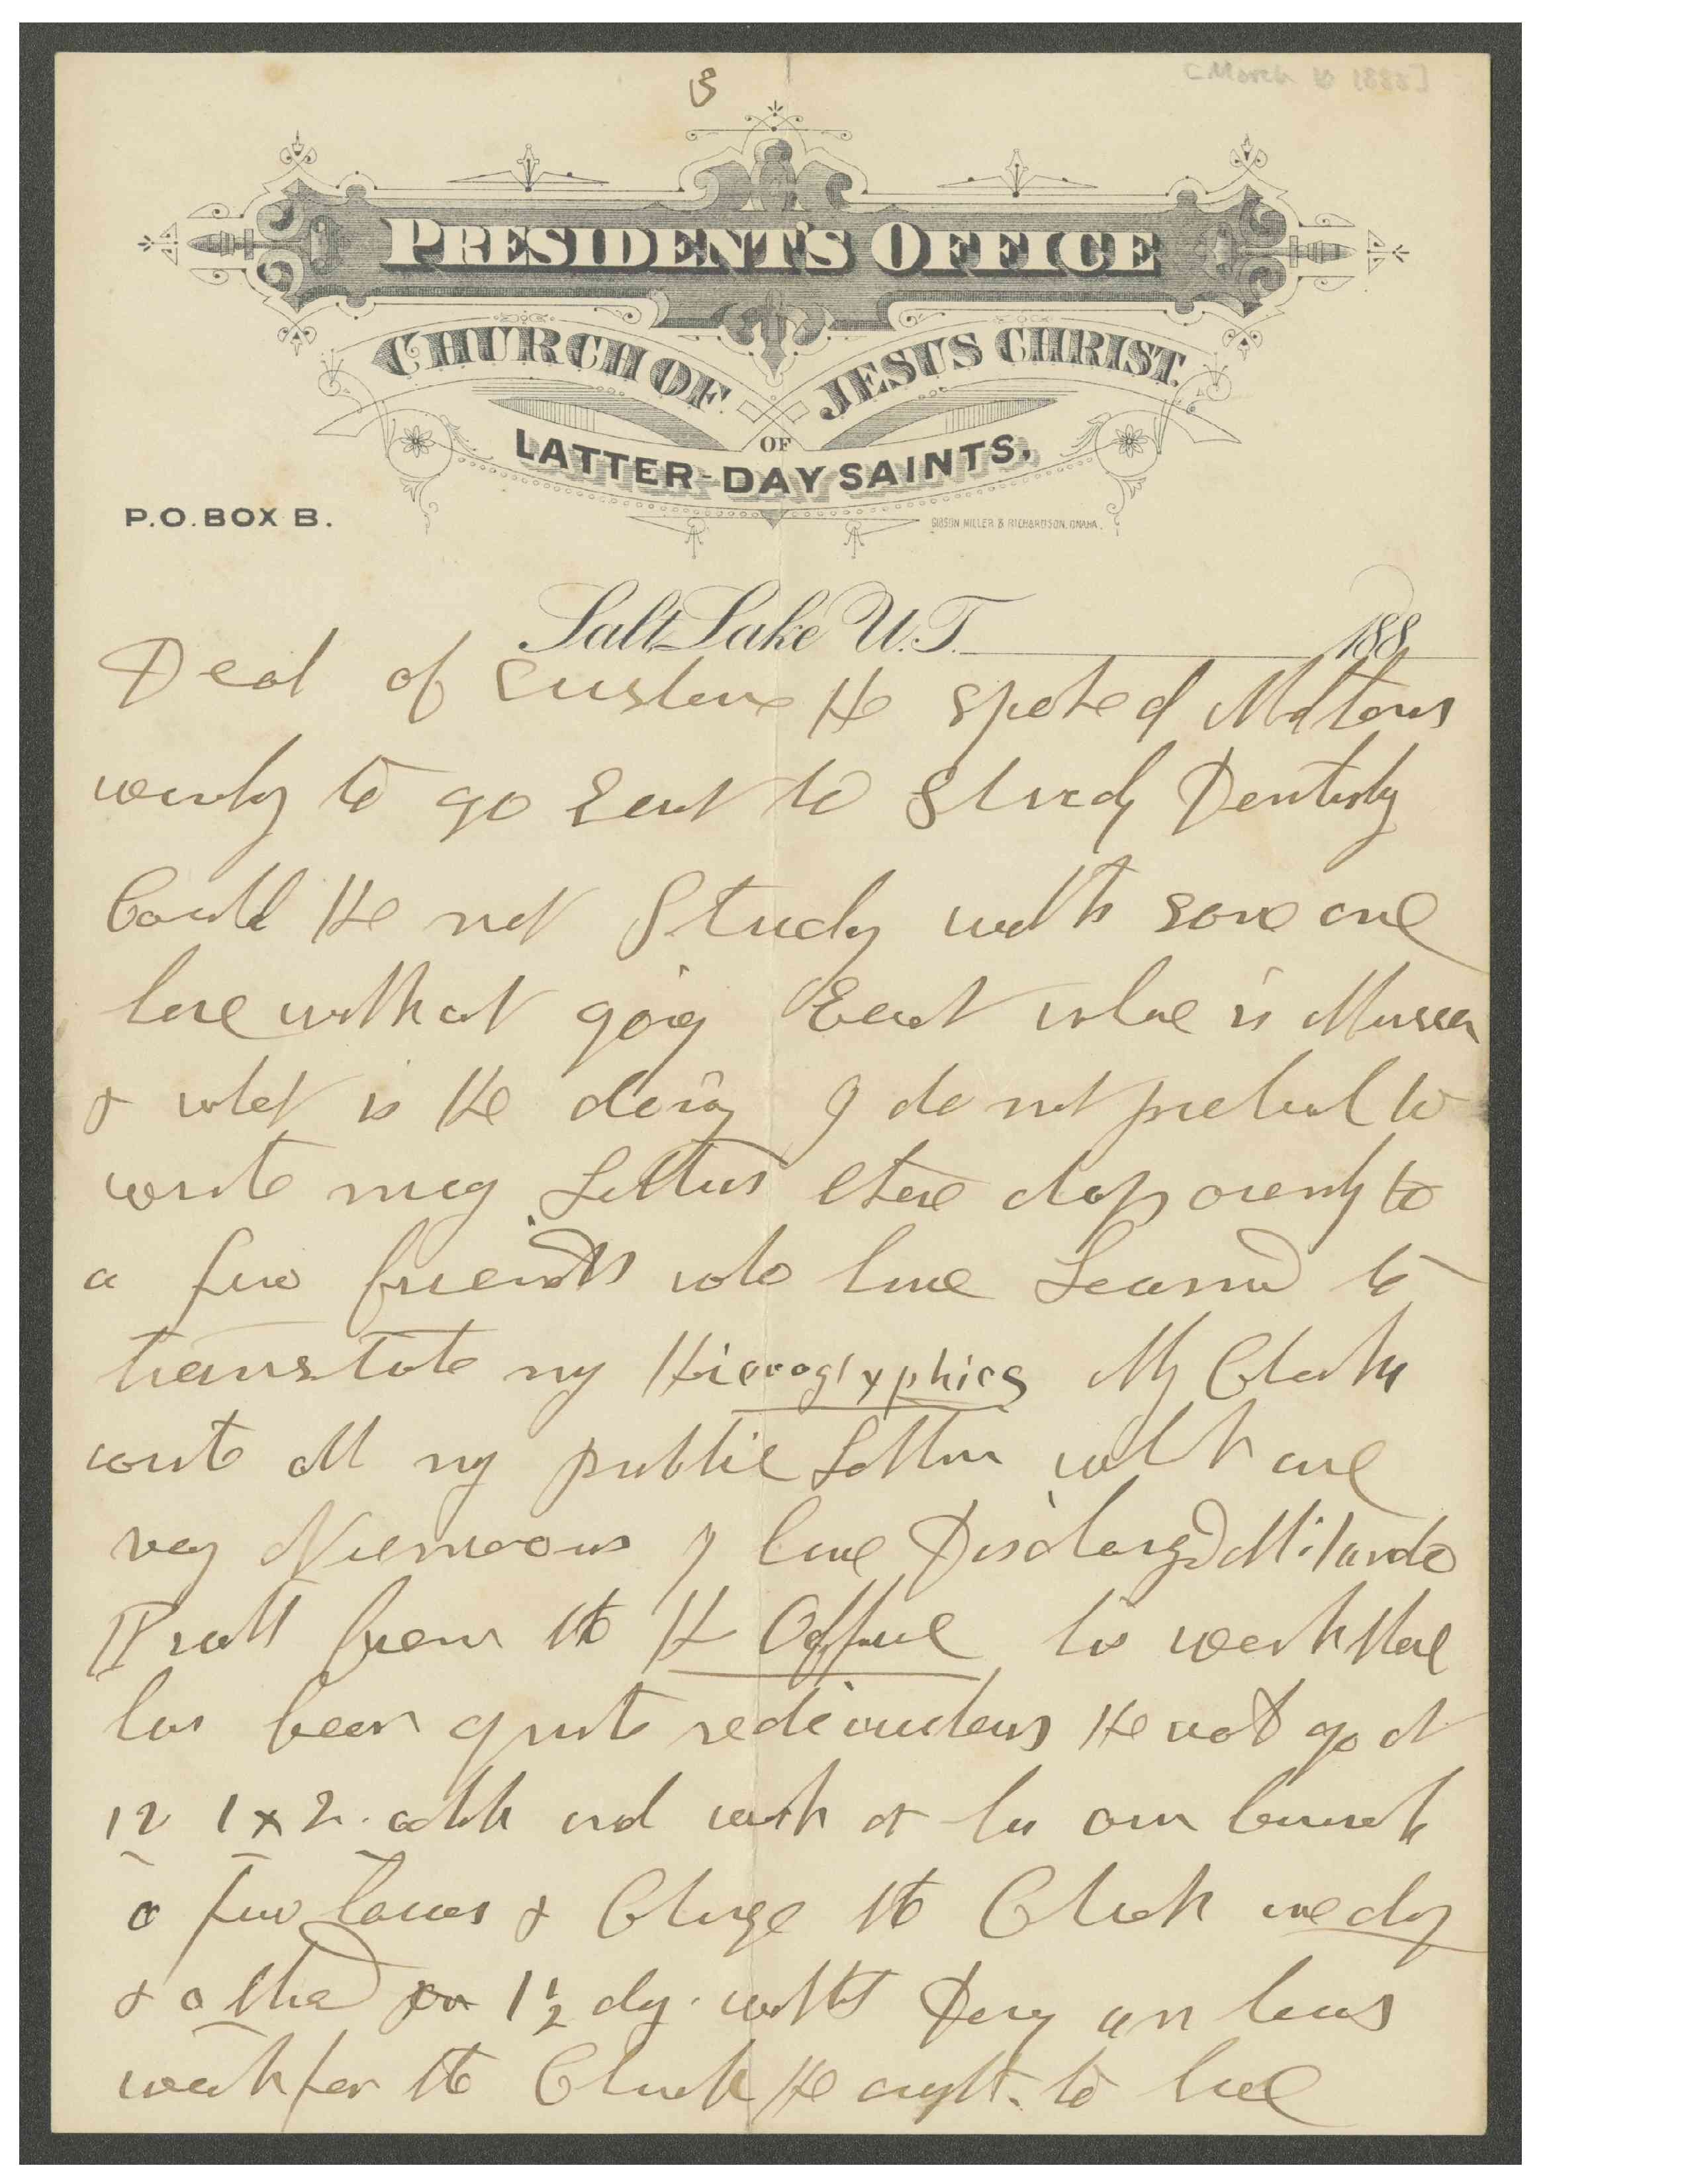 3
[March 1888]
PRESIDENT'S OFFICE
CHURCH OF JESUS CHRIST
OF
LATTER-DAY SAINTS.
P.O. BOX B.
GIBSON MILLER & RICHARDSON, OMAHA.
Salt Lake U.T. 188
Deal of He Spoke of Miltons
wanting to go East to Study Dentistry
Could He not Study with some one
here without going East whare is Musser
& what is He doing I do not pretend to
write many Letters these days ownly to
a few friends who have Learned to
translate my Hieroglyphics My Clerks
write all my public Letters which are
very Numerous I have Discharged Milando
Pratt from the H Office his work there
has been quite rediculous He would go at
12 1 & 2 oclok and work at his own
a few houers & Charge the Church one day
& others 1½ day without Doing an hours
work for the Church He aught to have